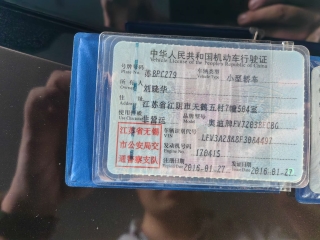 中华人民共和国机动车行驶证
Vehicle License of the People's Republic of China
号牌号码 苏BPC279 车辆类型 小型轿车
Plate No. Vehicle Type
所有人
Owner
住 址 江苏省江阴市天鹤五村7幢504室
Address
使用性质 非营运 品牌型号
Use Character Model
江苏省无锡 车辆识别代号
VIN
市公安局交 发动机号码 170415
Engine No.
通警察支队 注册日期 2016-01-27 发证日期 2016-01-27